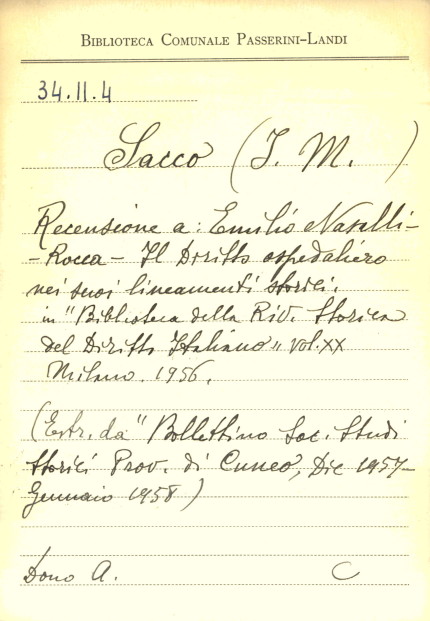 BIBLIOTECA COMUNALE PASSERINI-LANDI
34.II.4
Sacco (I. M. )
Recensione a: Emilio Nasalli-
-Rocca - Il Diritto ospedaliero
nei suoi lineamenti storici.
in "Biblioteca della Riv. Storica
del Diritto Italiano" vol. XX
Milano. 1956.
(Estr. da "Bollettino Soc. Studi
Storici Prov. di Cuneo, Dic 1957-
Gennaio 1958)
Dono A. C